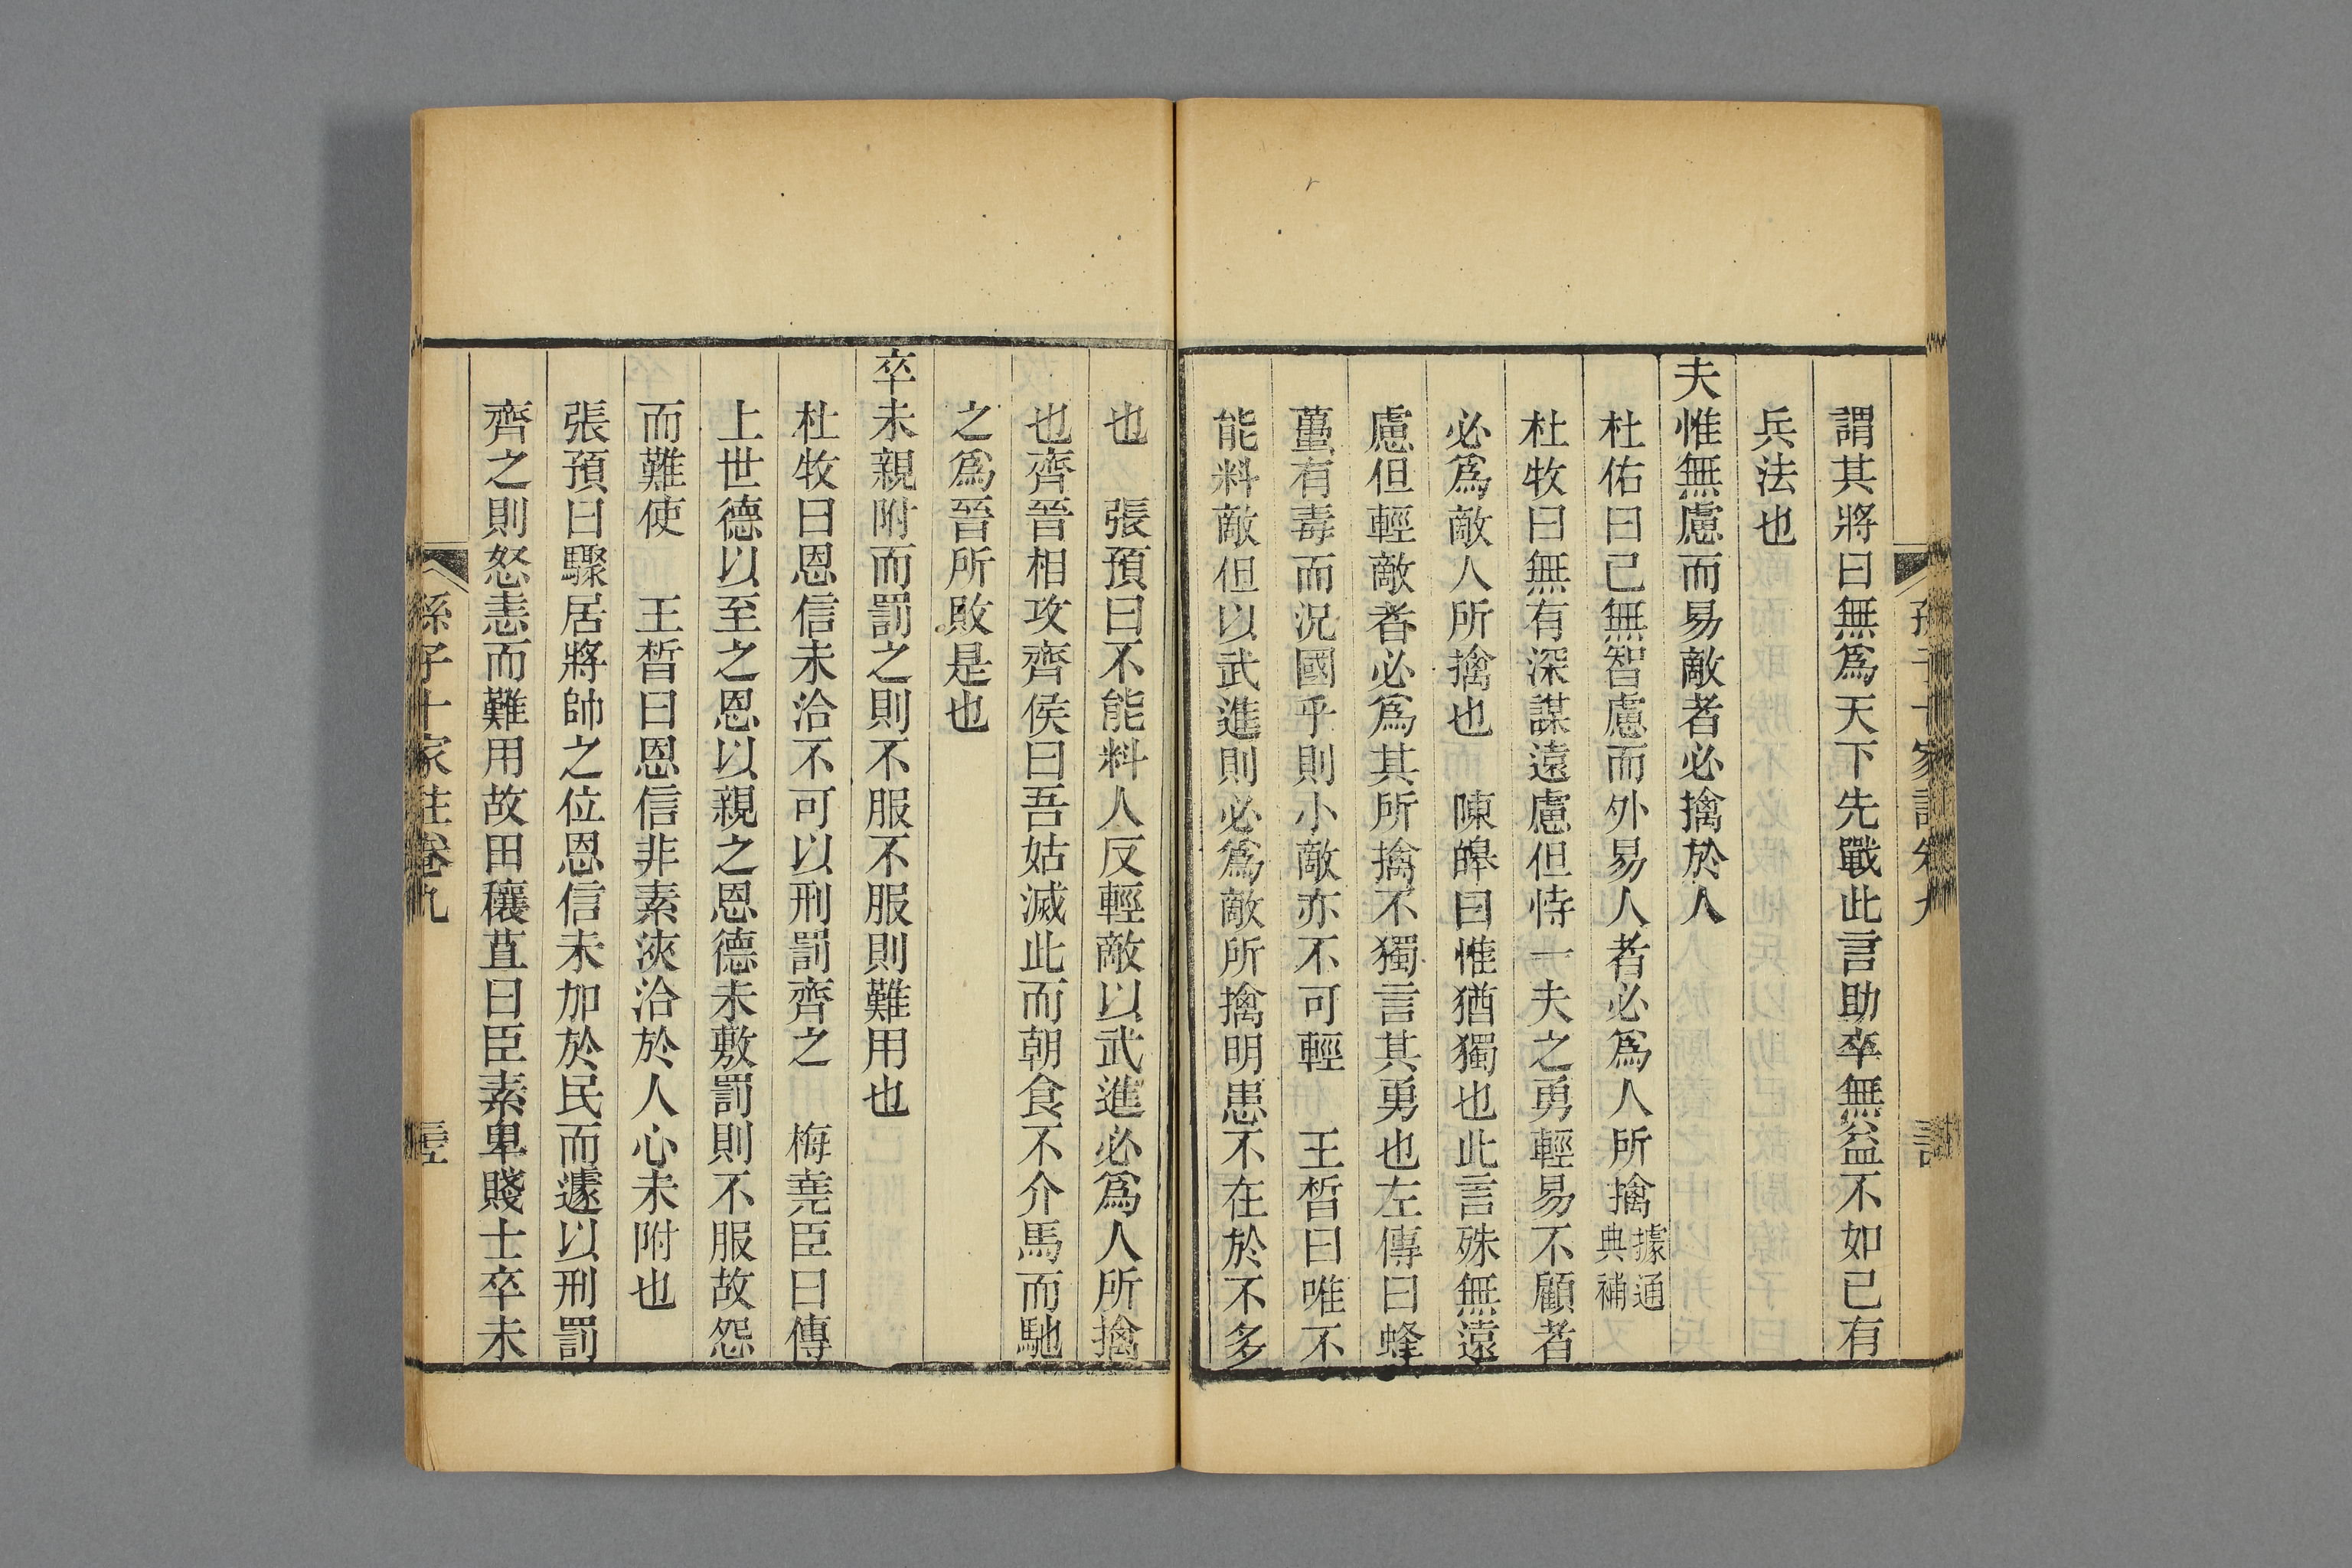 謂其將曰無爲天下先戰此言助卒無益不如已有
兵法也
夫惟無慮而易敵者必擒於人
杜佑曰己無智慮而外易人者必爲人所擒據通典補
杜牧曰無有深謀遠慮但恃一夫之勇輕易不顧者
必爲敵人所擒也　陳皥曰惟猶獨也此言殊無遠
慮但輕敵者必爲其所擒不獨言其勇也左傳曰蜂
蠆有毒而況國乎則小敵亦不可輕　王晳曰唯不
能料敵但以武進則必爲敵所擒明患不在於不多
也　張預曰不能料人反輕敵以武進必爲人所擒
也齊晉相攻齊侯曰吾姑滅此而朝食不介馬而馳
之爲晉所敗是也
卒未親附而罰之則不服不服則難用也
杜牧曰恩信未洽不可以刑罰齊之　梅堯臣曰傳
上世德以至之恩以親之恩德未敷罰則不服故怨
而難使　王晳曰恩信非素浹洽於人心未附也
張預曰驟居將帥之位恩信未加於民而遽以刑罰
齊之則怒恚而難用故田穰苴曰臣素卑賤士卒未
孫子十家註卷九